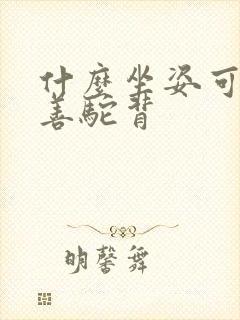 什麼坐姿可
善駝背
明馨舞